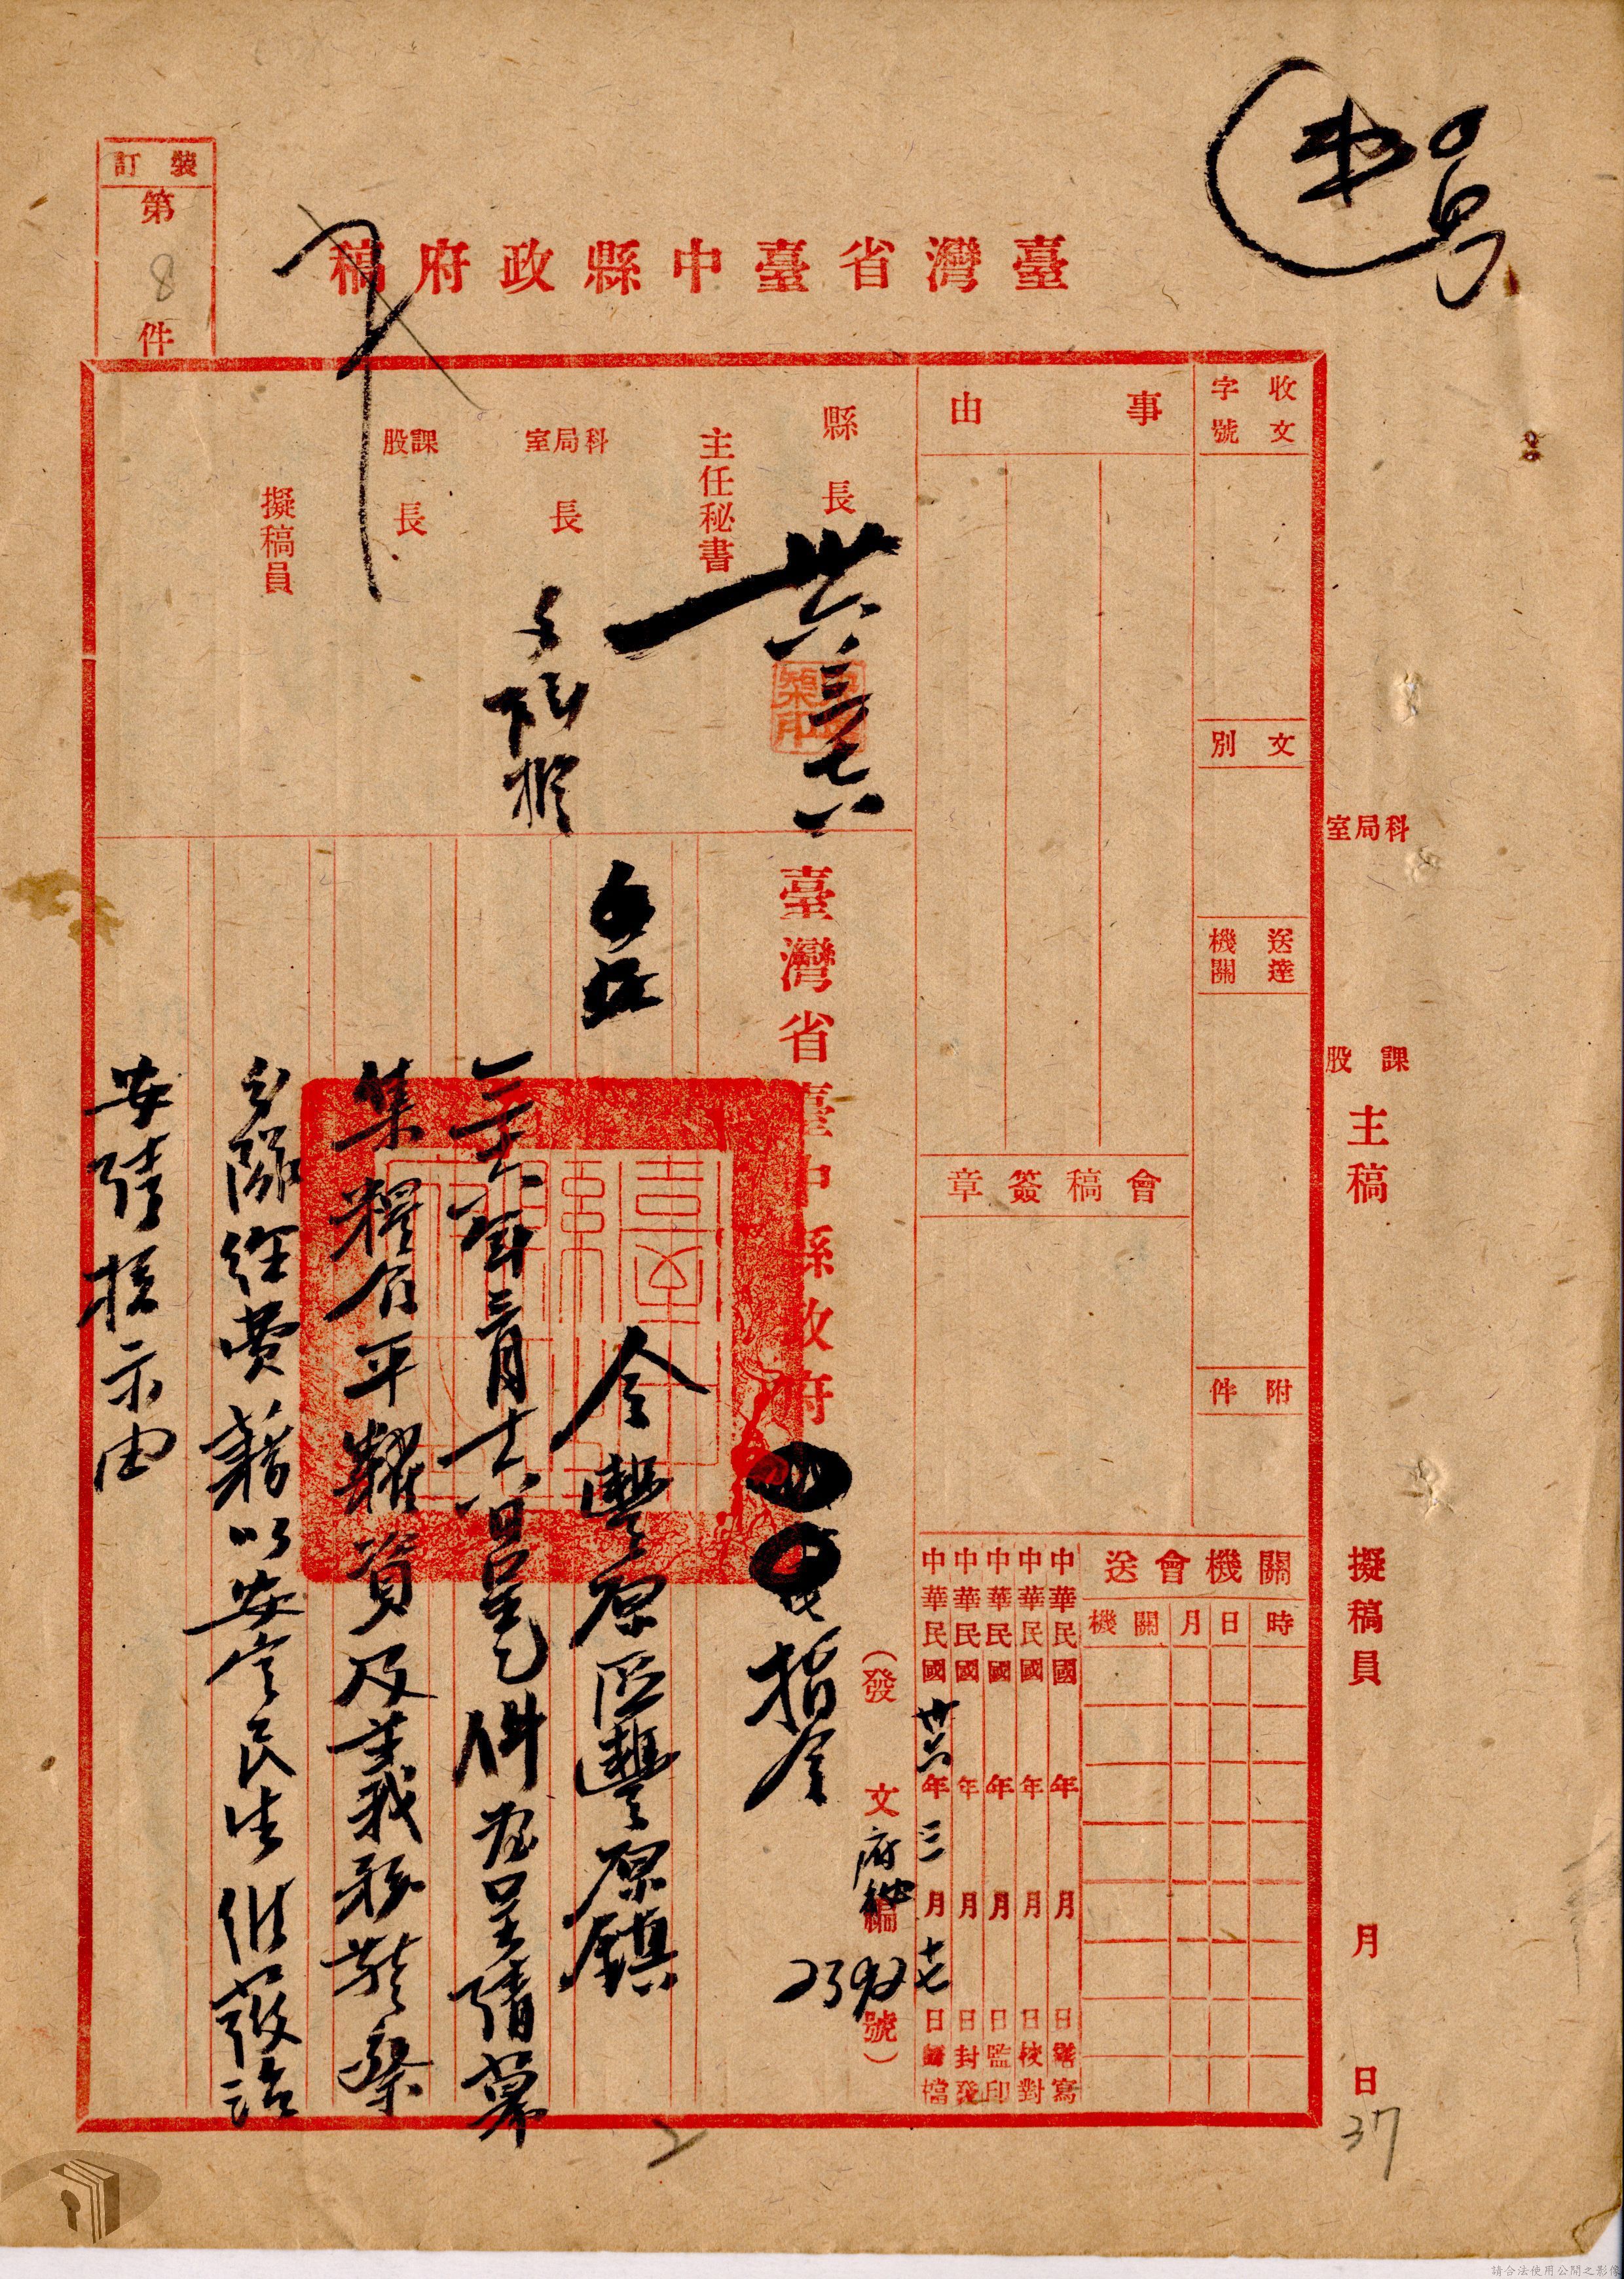 裝訂
第
8
件
臺灣省臺中縣政府稿
收文
字號
文別
送達
機關
附件
事由
會稿簽章
關機會送
時 日 月 關機
中華民國 年 月 日繕寫
中華民國 年 月 日校對
中華民國 年 月 日監印
中華民國 年 月 日封發
中華民國卅六年三月十七日歸檔
科局室
課股
主稿
擬稿員
月
日
37
縣長
卅六
三
十七
主任秘書
科局室長
課股長
擬稿員
臺灣省臺中縣政府
指令
(發文府秘編
號)
令豐原區豐原鎮
三十六年三月十六日呈乙件為呈請募
集糧食平糶資及義務警察
分隊經費藉以安定民生維護治
安請核示由
請合法使用公開之影像